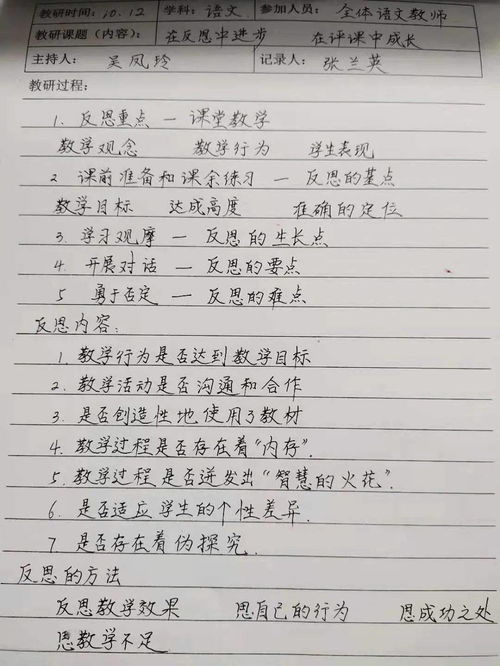 教研时间：10.12 学科：语文 参加人员：全体语文教师
教研课题（内容）：在反思中进步 在评课中成长
主持人：吴凤玲 记录人：张兰英
教研过程：
1. 反思重点 — 课堂教学
教学观念 教学行为 学生表现
2 课前准备和课余练习 — 反思的基点
教学目标 达成高度 准确的定位
3. 学习观摩 — 反思的生长点
4. 开展对话 — 反思的要点
5 勇于否定 — 反思的难点
反思内容：
1. 教学行为是否达到教学目标
2. 教学活动是否沟通和合作
3. 是否创造性地使用了教材
4. 教学过程是否存在着“内存”.
5. 教学过程是否迸发出“智慧的火花”.
6. 是否适应学生的个性差异.
7 是否存在着伪探究.
反思的方法
反思教学效果 思自己的行为 思成功之处
思教学不足